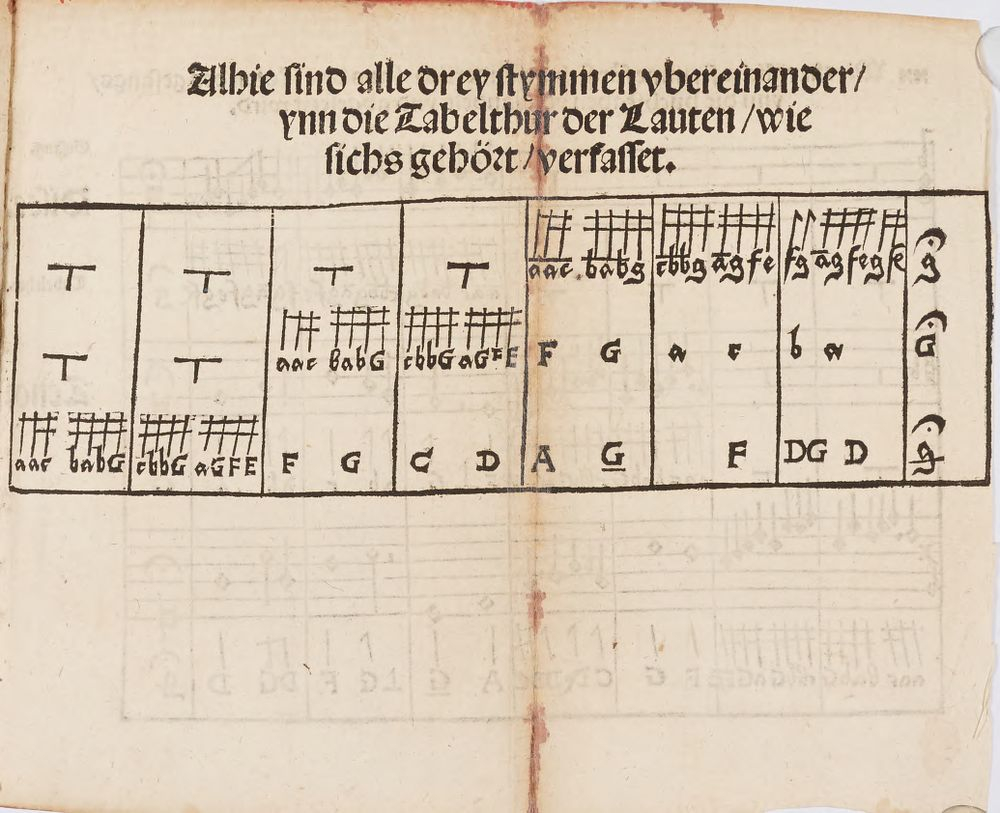 Alhie sind alle drey stymmen vbereinander/
ynn die Tabelthur der Lauten /wie
sichs gehört / verfasset.
aac babg cbbg ag fe fg ag fe g fe g
aac babG cbbG aG FE F G a c b a G
aac babG cbbG aG FE F G C D A G F DG D g